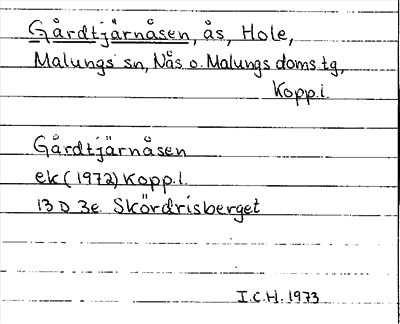 Gårdtjärnåsen, ås, Hole,
Malungs sn, Nås o. Malungs doms.tg,
Kopp.l.
Gårdtjärnåsen
ek (1972) Kopp.l.
13 D 3e Skördrisberget
I.C.H. 1973